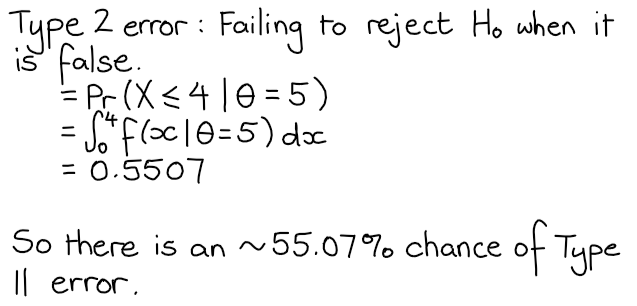 Type 2 error : Failing to reject H₀ when it
is false.
= Pr(X ≤ 4 | θ = 5)
= ∫₀⁴ f(x | θ = 5) dx
= 0.5507
So there is an ~55.07% chance of Type
II error.